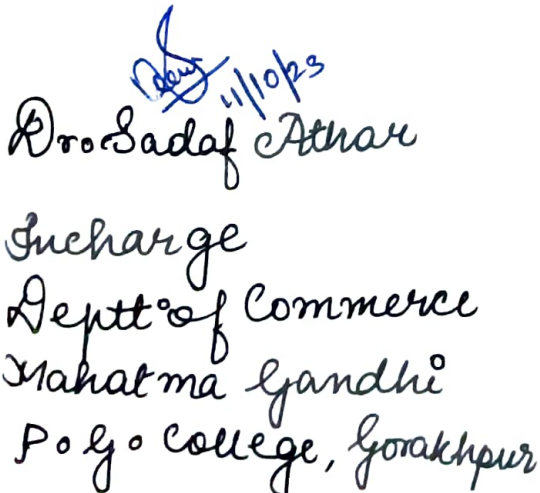 11/10/23
Dr. Sadaf Athar
Incharge
Deptt. of Commerce
Mahatma Gandhi
P.G. College, Gorakhpur